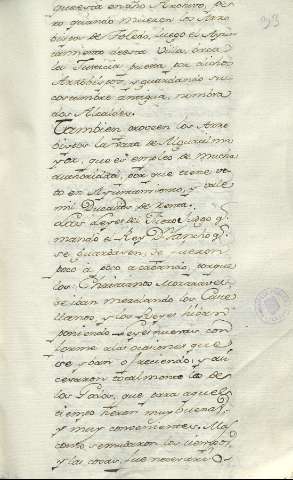 93
questa en año Archivo, pe-
ro quando mueren los Arzo-
bispos de Toledo, luego el Ayun-
tamiento de esta Villa, toma
la Justicia puesta por dichos
Arzobispos, y guardando su
costumbre antigua, nombra
dos Alcaldes.
Tambien proveen los Arzo-
bispos la Vara de Alguacil ma-
yor, que es empleo de mucha
authoridad, por que tiene vo-
to en Ayuntamiento, y vale
mil Ducados de Renta.
Las Leyes del Fuero Juzgo q.e
mando el Rey D. Sancho q.e
se guardasen, se fueron
poco a poco acabando, porque
los Christianos Mozarabes
se iban mezclando con los Caste-
llanos, y los Reyes iban
poniendo Leyes nuevas con-
forme a las ocasiones que
se iban ofreciendo, y assi
cesaron totalmente las de
los Godos, que para aquel
tiempo fueron muy buenas,
y muy convenientes. Mas
como se mudaron los tiempos,
y las cosas, fue necesario